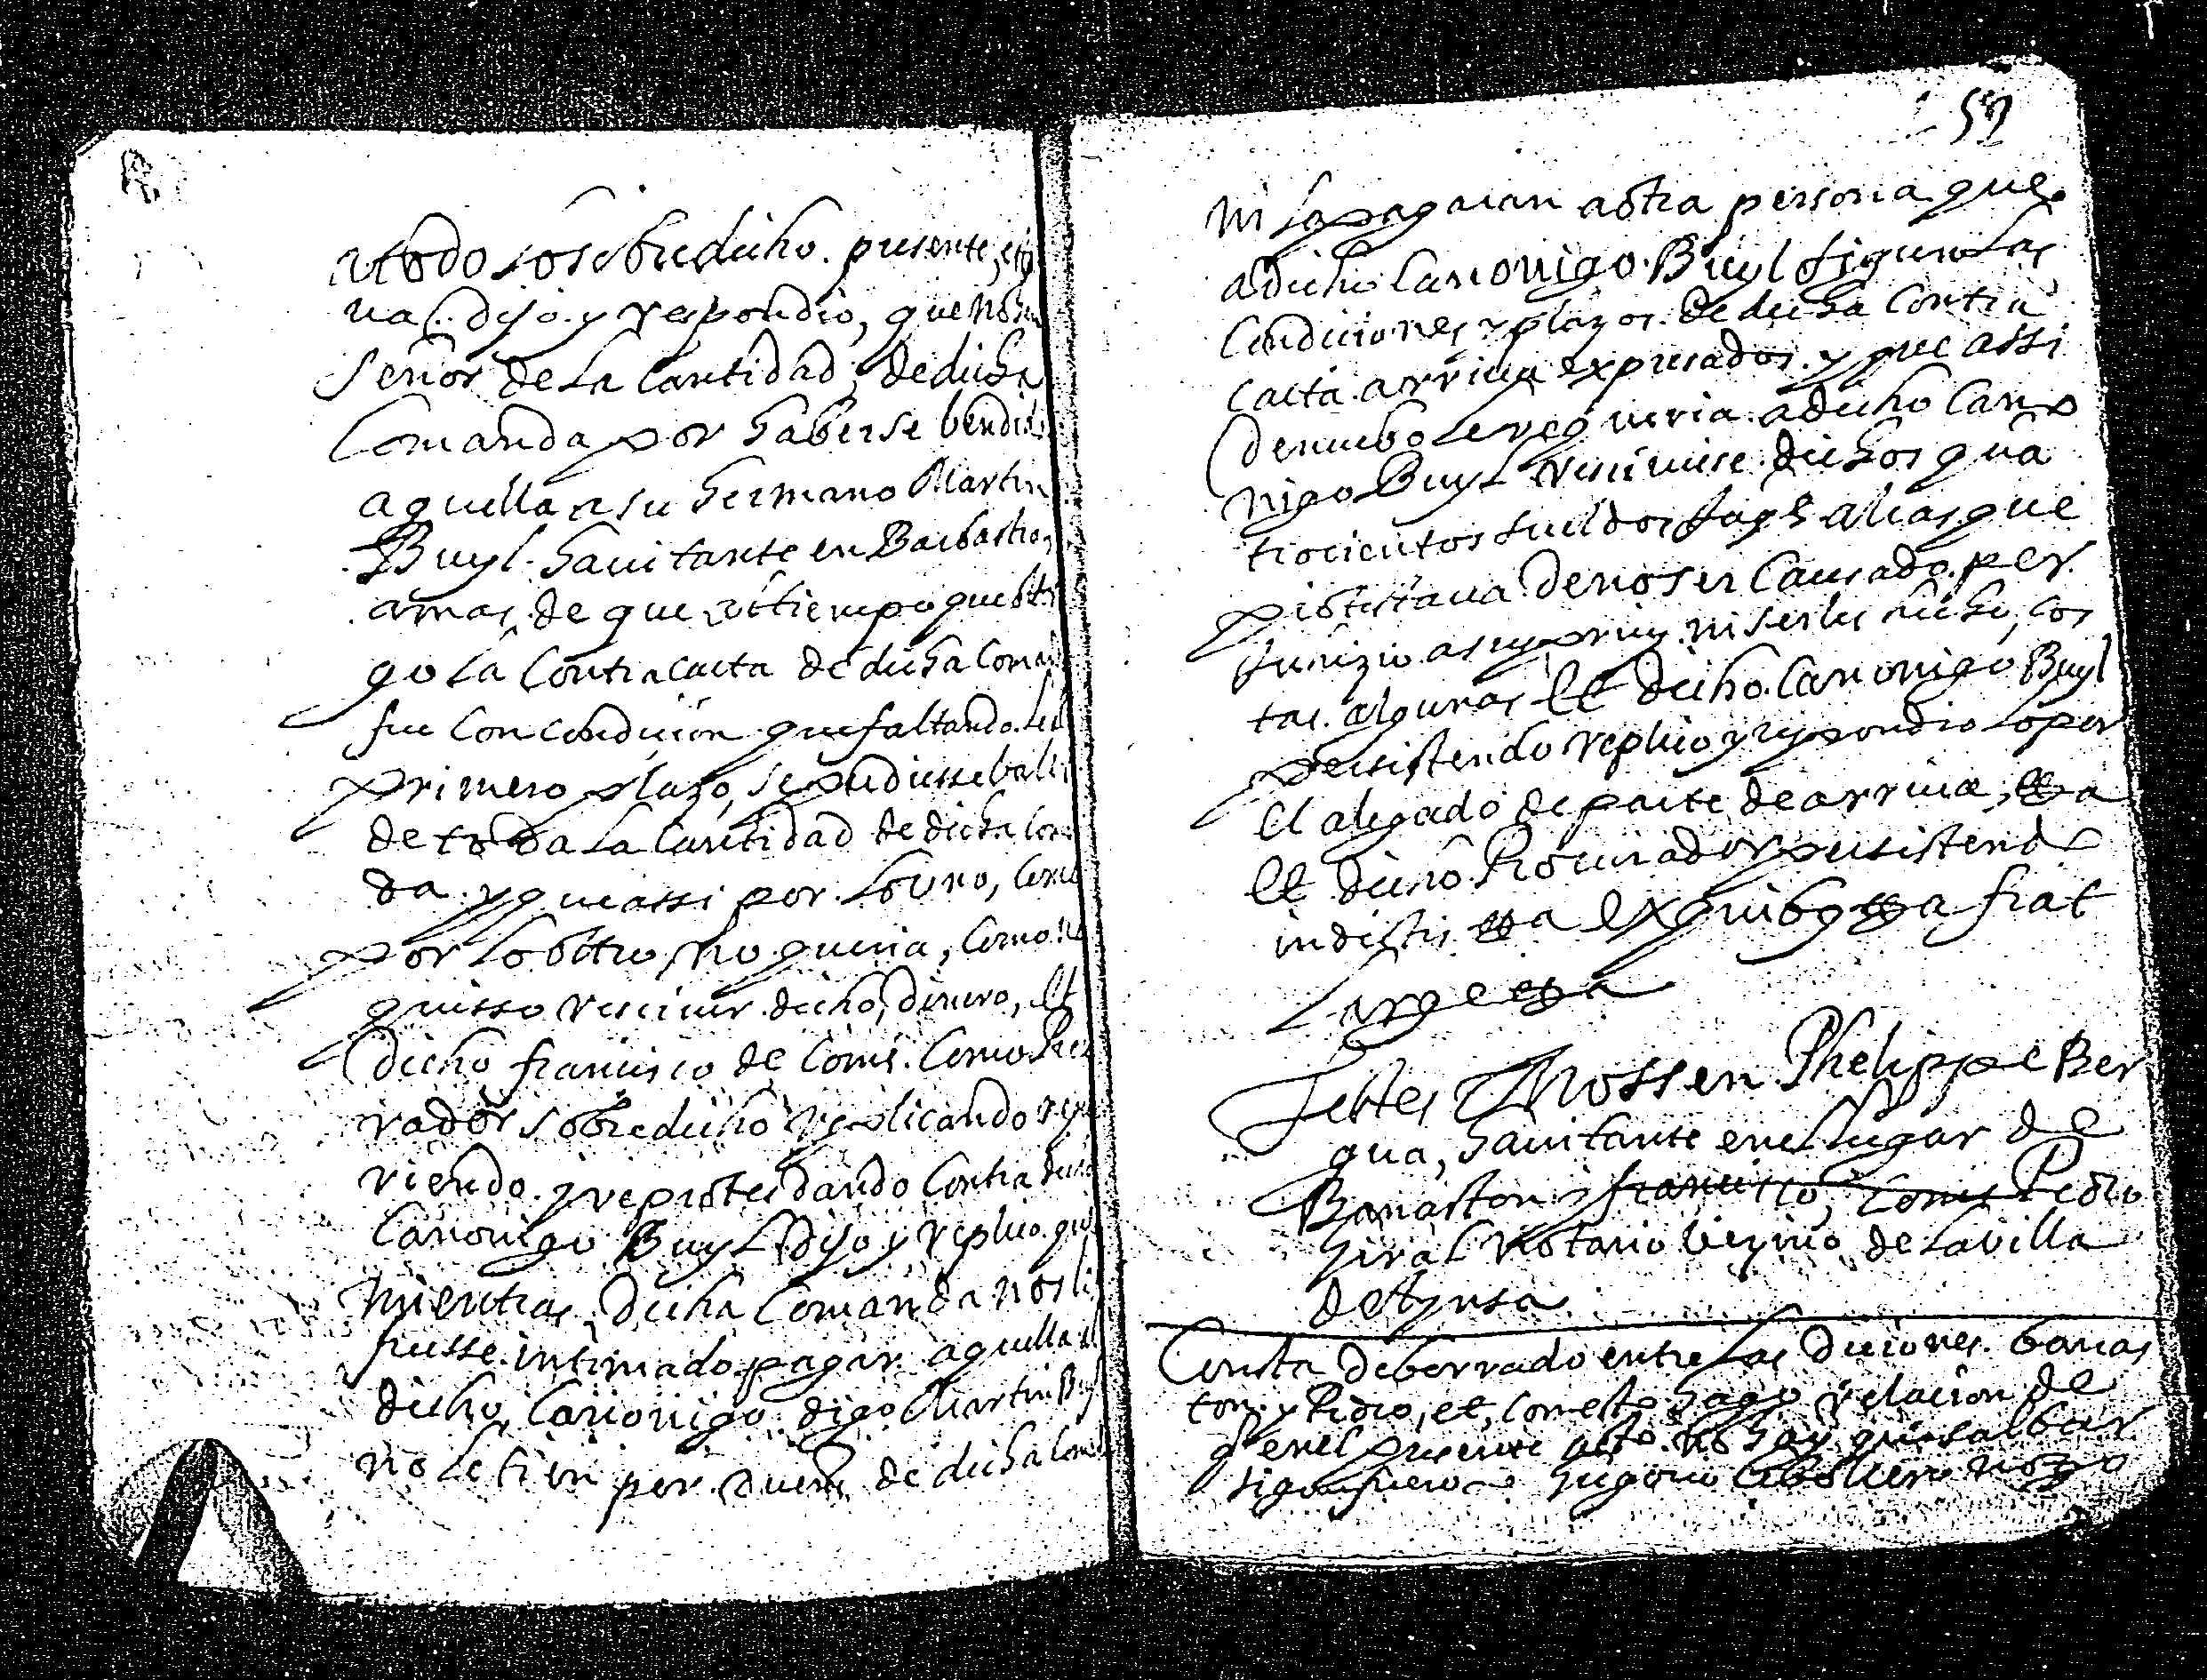 atodo losobredicho. presente,
nal. dijo. y respondio, que no
Señor de la Cantidad, de dicha
Comanda por haberse bendido
aquella a su hermano Martin
Buyl. havitante en Barbastro,
amas, de que al tiempo que
go la Contracarta de dicha Coman
fue con condicion que faltando.
primero plazo, se pudiesse baler
de toda la Cantidad de dicha Com
da. y que assi por. lo uno, Como
por lo otro, no queria, Como
quisso rescivir dicho, dinero, et
dicho francisco de Coms. Como Proc
rador sobredicho replicando
riendo. y reprotestando Contra
Canonigo Buyl dijo y replico. que
mientras, dicha Comanda no
fuesse. intimado pagar. aquella
dicho, Canonigo. digo Martin Buyl
no le tien por dueño de dicha
52
ni la pagaran a otra persona que
a dicho Canonigo. Buyl sigun las
Condiciones y plazos. de dicha Contra
carta. arriva expresados. y que assi
de nuebo le requeria. a dicho Cano
nigo Buyl rescivise. dichos qua
trocientos sueldos Jaqs alias que
protestava de no ser Causado. per
juhizio a su prin. ni serle hecho, cos
tas. algunas Et dicho. Canonigo Buyl
persistendo replico y respondio lo por
el alegado de parte de arriva, etta
Et dicho Procurador persistendo
in dictis etta ex quibus etta fiat
Large etta
Testes Mossen Phelippe Ber
gua, havitante en el lugar de
Banaston y francisco, Coms Pedro
Hiral Notario Vezino de la Villa
de Aynsa
Consta de borrado entre las diciones. banas
ton. y Pedro, et, Con esto hago relacion de
q en el presente acto. no hay que salbar
sigun fuero